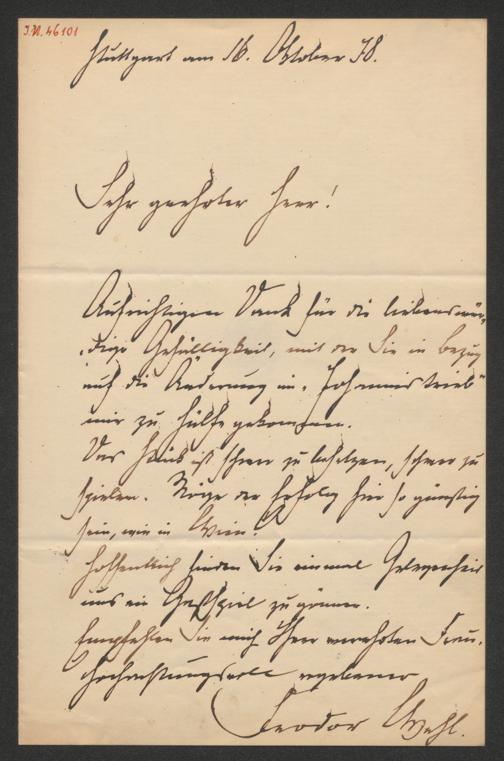 I.N. 46101
Stuttgart am 16. Oktober 78.
Sehr geehrter Herr!
Aufrichtigen Dank für die liebenswür-
dige Gefälligkeit, mit der Sie in Bezug
auf die Änderung in „Johannistrieb“
mir zu Hülfe gekommen.
Das Stück ist schwer zu besetzen, schwer zu
spielen. Möge der Erfolg hier so günstig
sein, wie in Wien!
Hoffentlich finden Sie einmal Gelegenheit
uns ein Gastspiel zu gönnen.
Empfehlen Sie mich Ihrer verehrten Frau.
Hochachtungsvoll ergebener
Feodor Wehl.